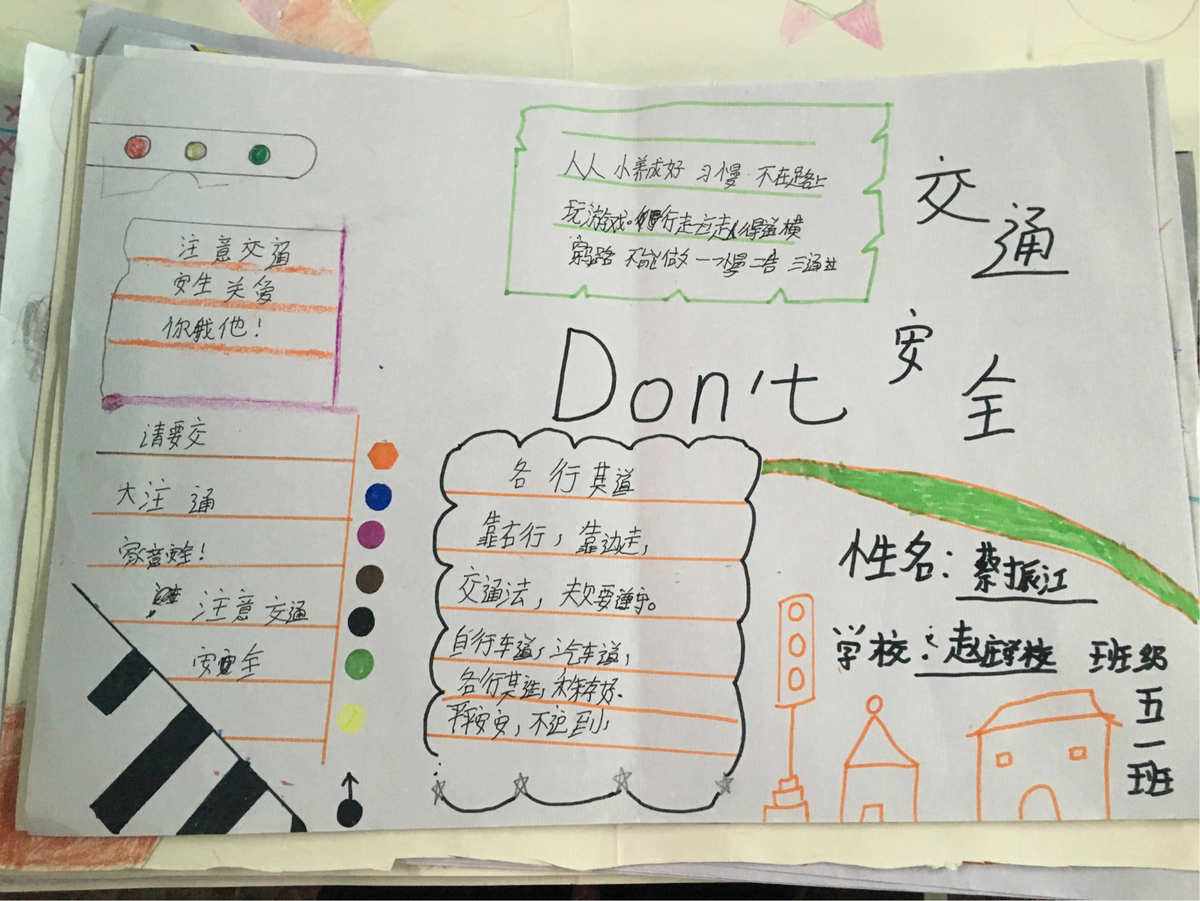 交通
安全
Don't
人人 小养成好 习慢 不在路上
玩游戏。行走应走人得道横
穿马路 不能做 一慢二告 三通过
注意交通
安生关爱
你我他！
请要交
大注 通
家意安全！
注意交通
安全
各行其道
靠右行，靠边走，
交通法，要遵守。
自行车道，汽车道，
各行其道，秩序好.
平安安，不
性名：蔡振江
学校：赵庄学校 班级
五
一
班